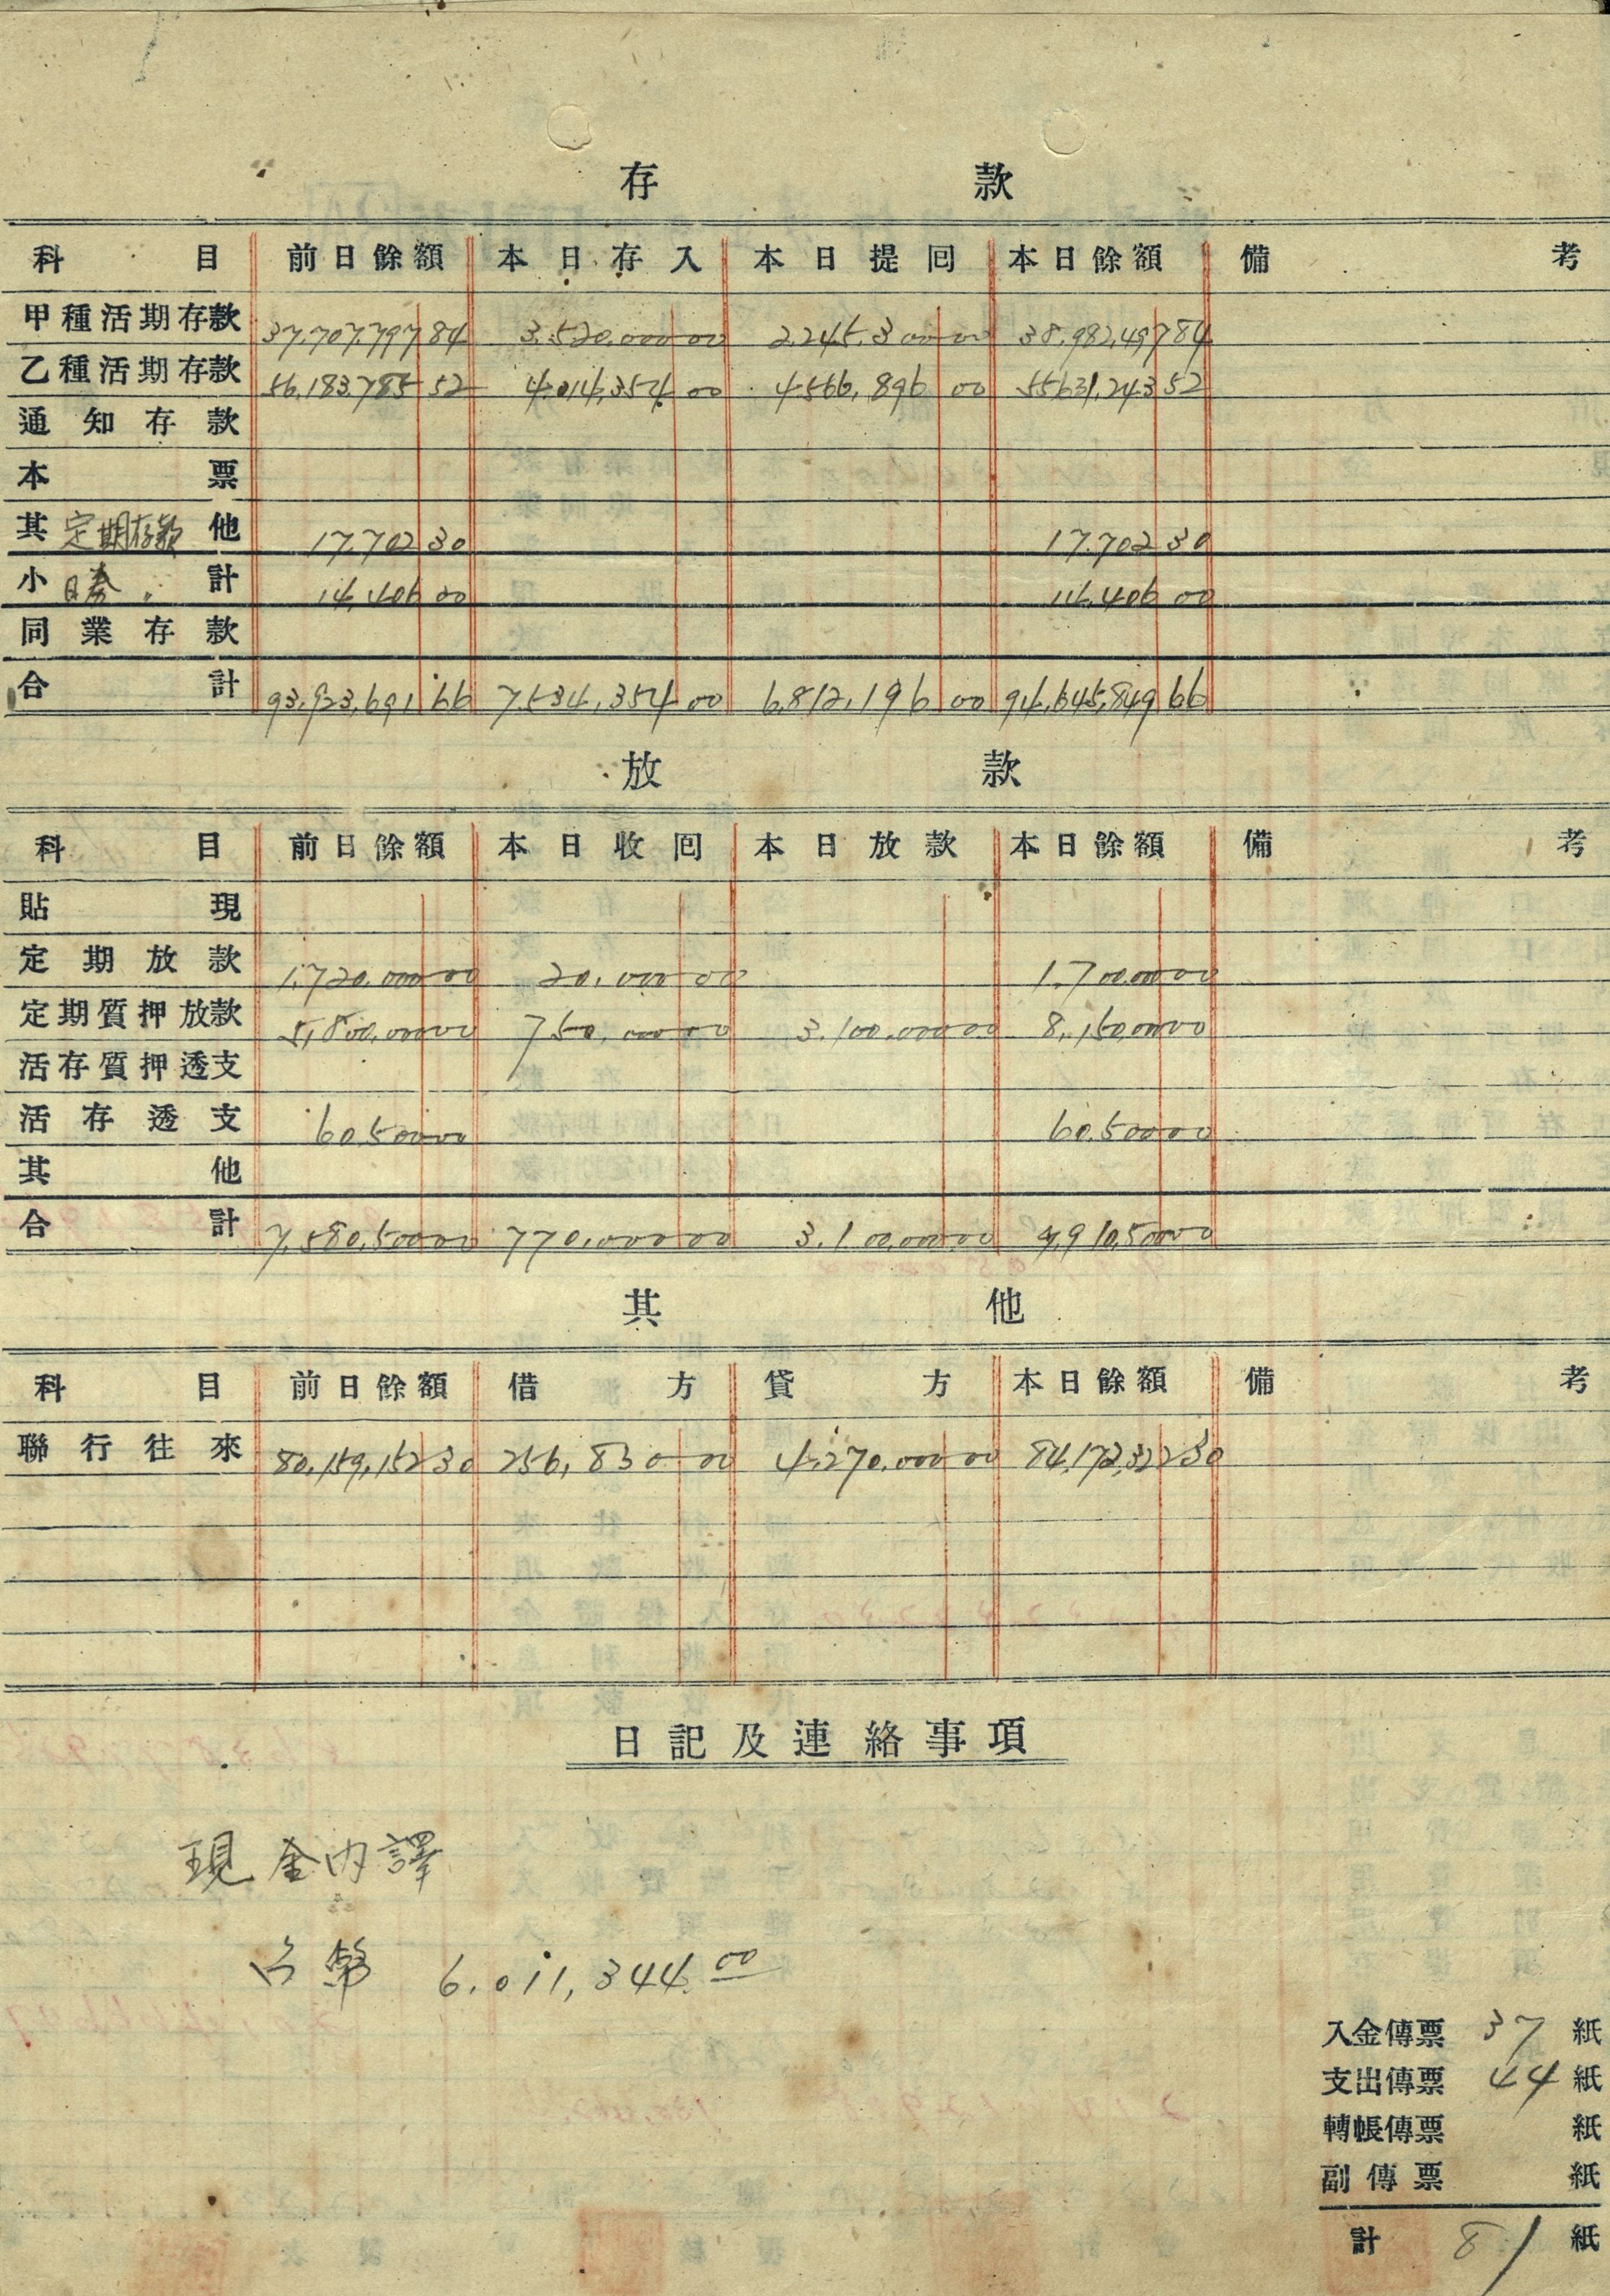 存 款
科 目 前日餘額 本日存入 本日提囘 本日餘額 備 考
甲種活期存款 37,707,797 84 3,520,000 00 2,245,300 00 38,982,497 84
乙種活期存款 56,183,785 52 4,014,354 00 4,566,896 00 55,631,243 52
通知存款
本票
其 定期存款 他 17,702 30 17,702 30
小 日券 〃 計 14,406 00 14,406 00
同業存款
合計 93,923,691 66 7,534,354 00 6,812,196 00 94,645,849 66
放 款
科 目 前日餘額 本日收囘 本日放款 本日餘額 備 考
貼現
定期放款 1,720,000 00 20,000 00 1,700,000 00
定期質押放款 5,800,000 00 750,000 00 3,100,000 00 8,150,000 00
活存質押透支
活存透支 60,500 00 60,500 00
其他
合計 7,580,500 00 770,000 00 3,100,000 00 9,910,500 00
其 他
科 目 前日餘額 借方 貸方 本日餘額 備 考
聯行往來 80,159,152 30 256,830 00 4,270,000 00 84,172,322 30
日記及連絡事項
現金内譯
台幣 6,011,344.00
入金傳票 37 紙
支出傳票 44 紙
轉帳傳票 紙
副傳票 紙
計 81 紙